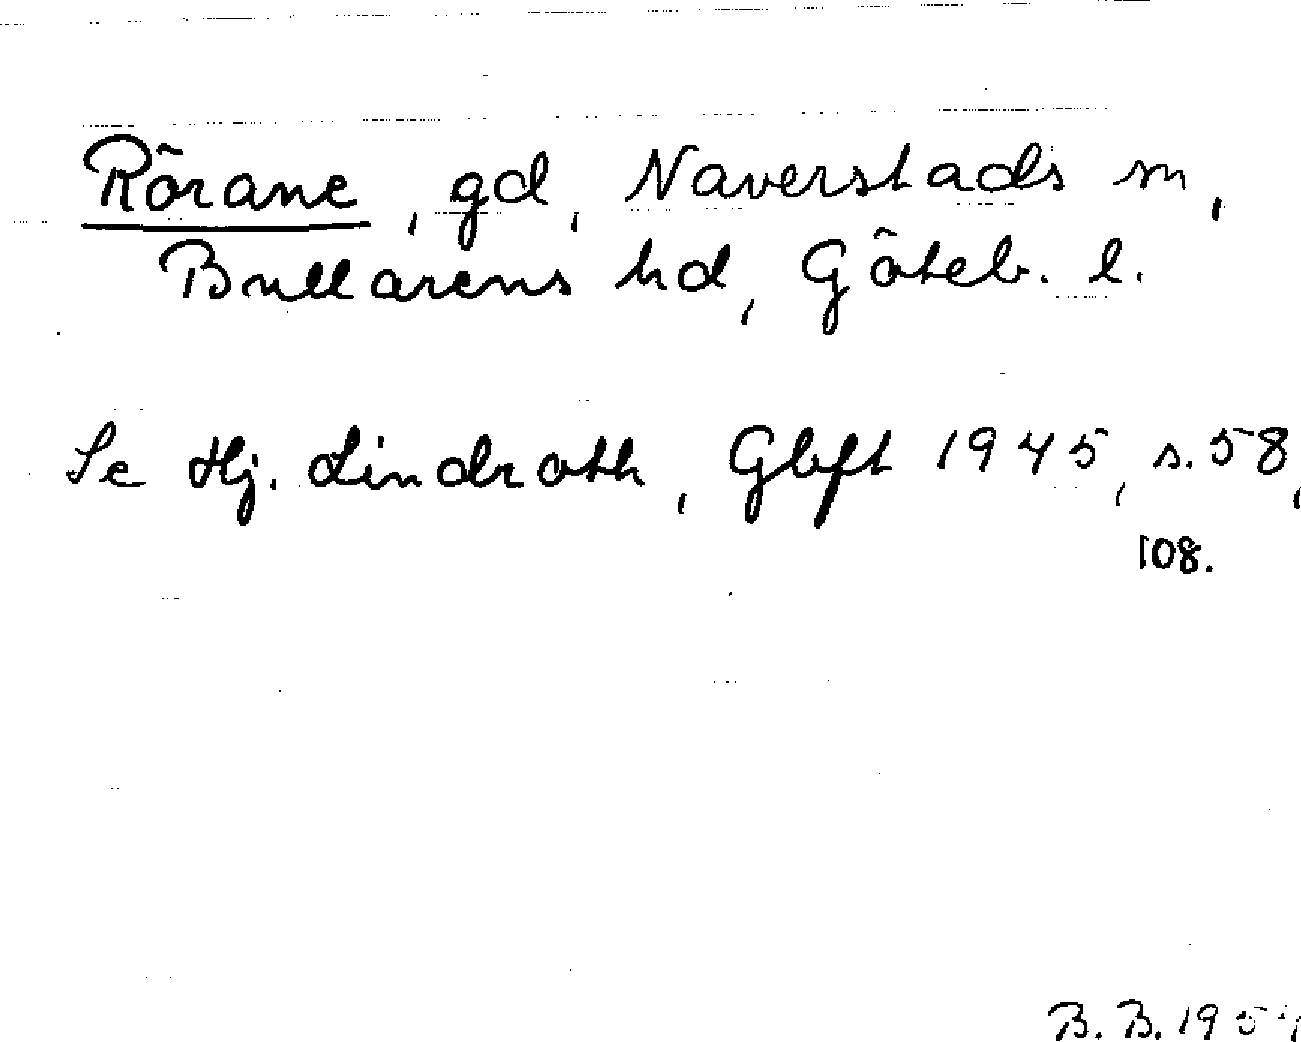 Rörane, gd, Naverstads sn,
Bullarens hd, Göteb. l.
Se Hj. Lindroth, Gbft 1945, s. 58,
108.
B. B.